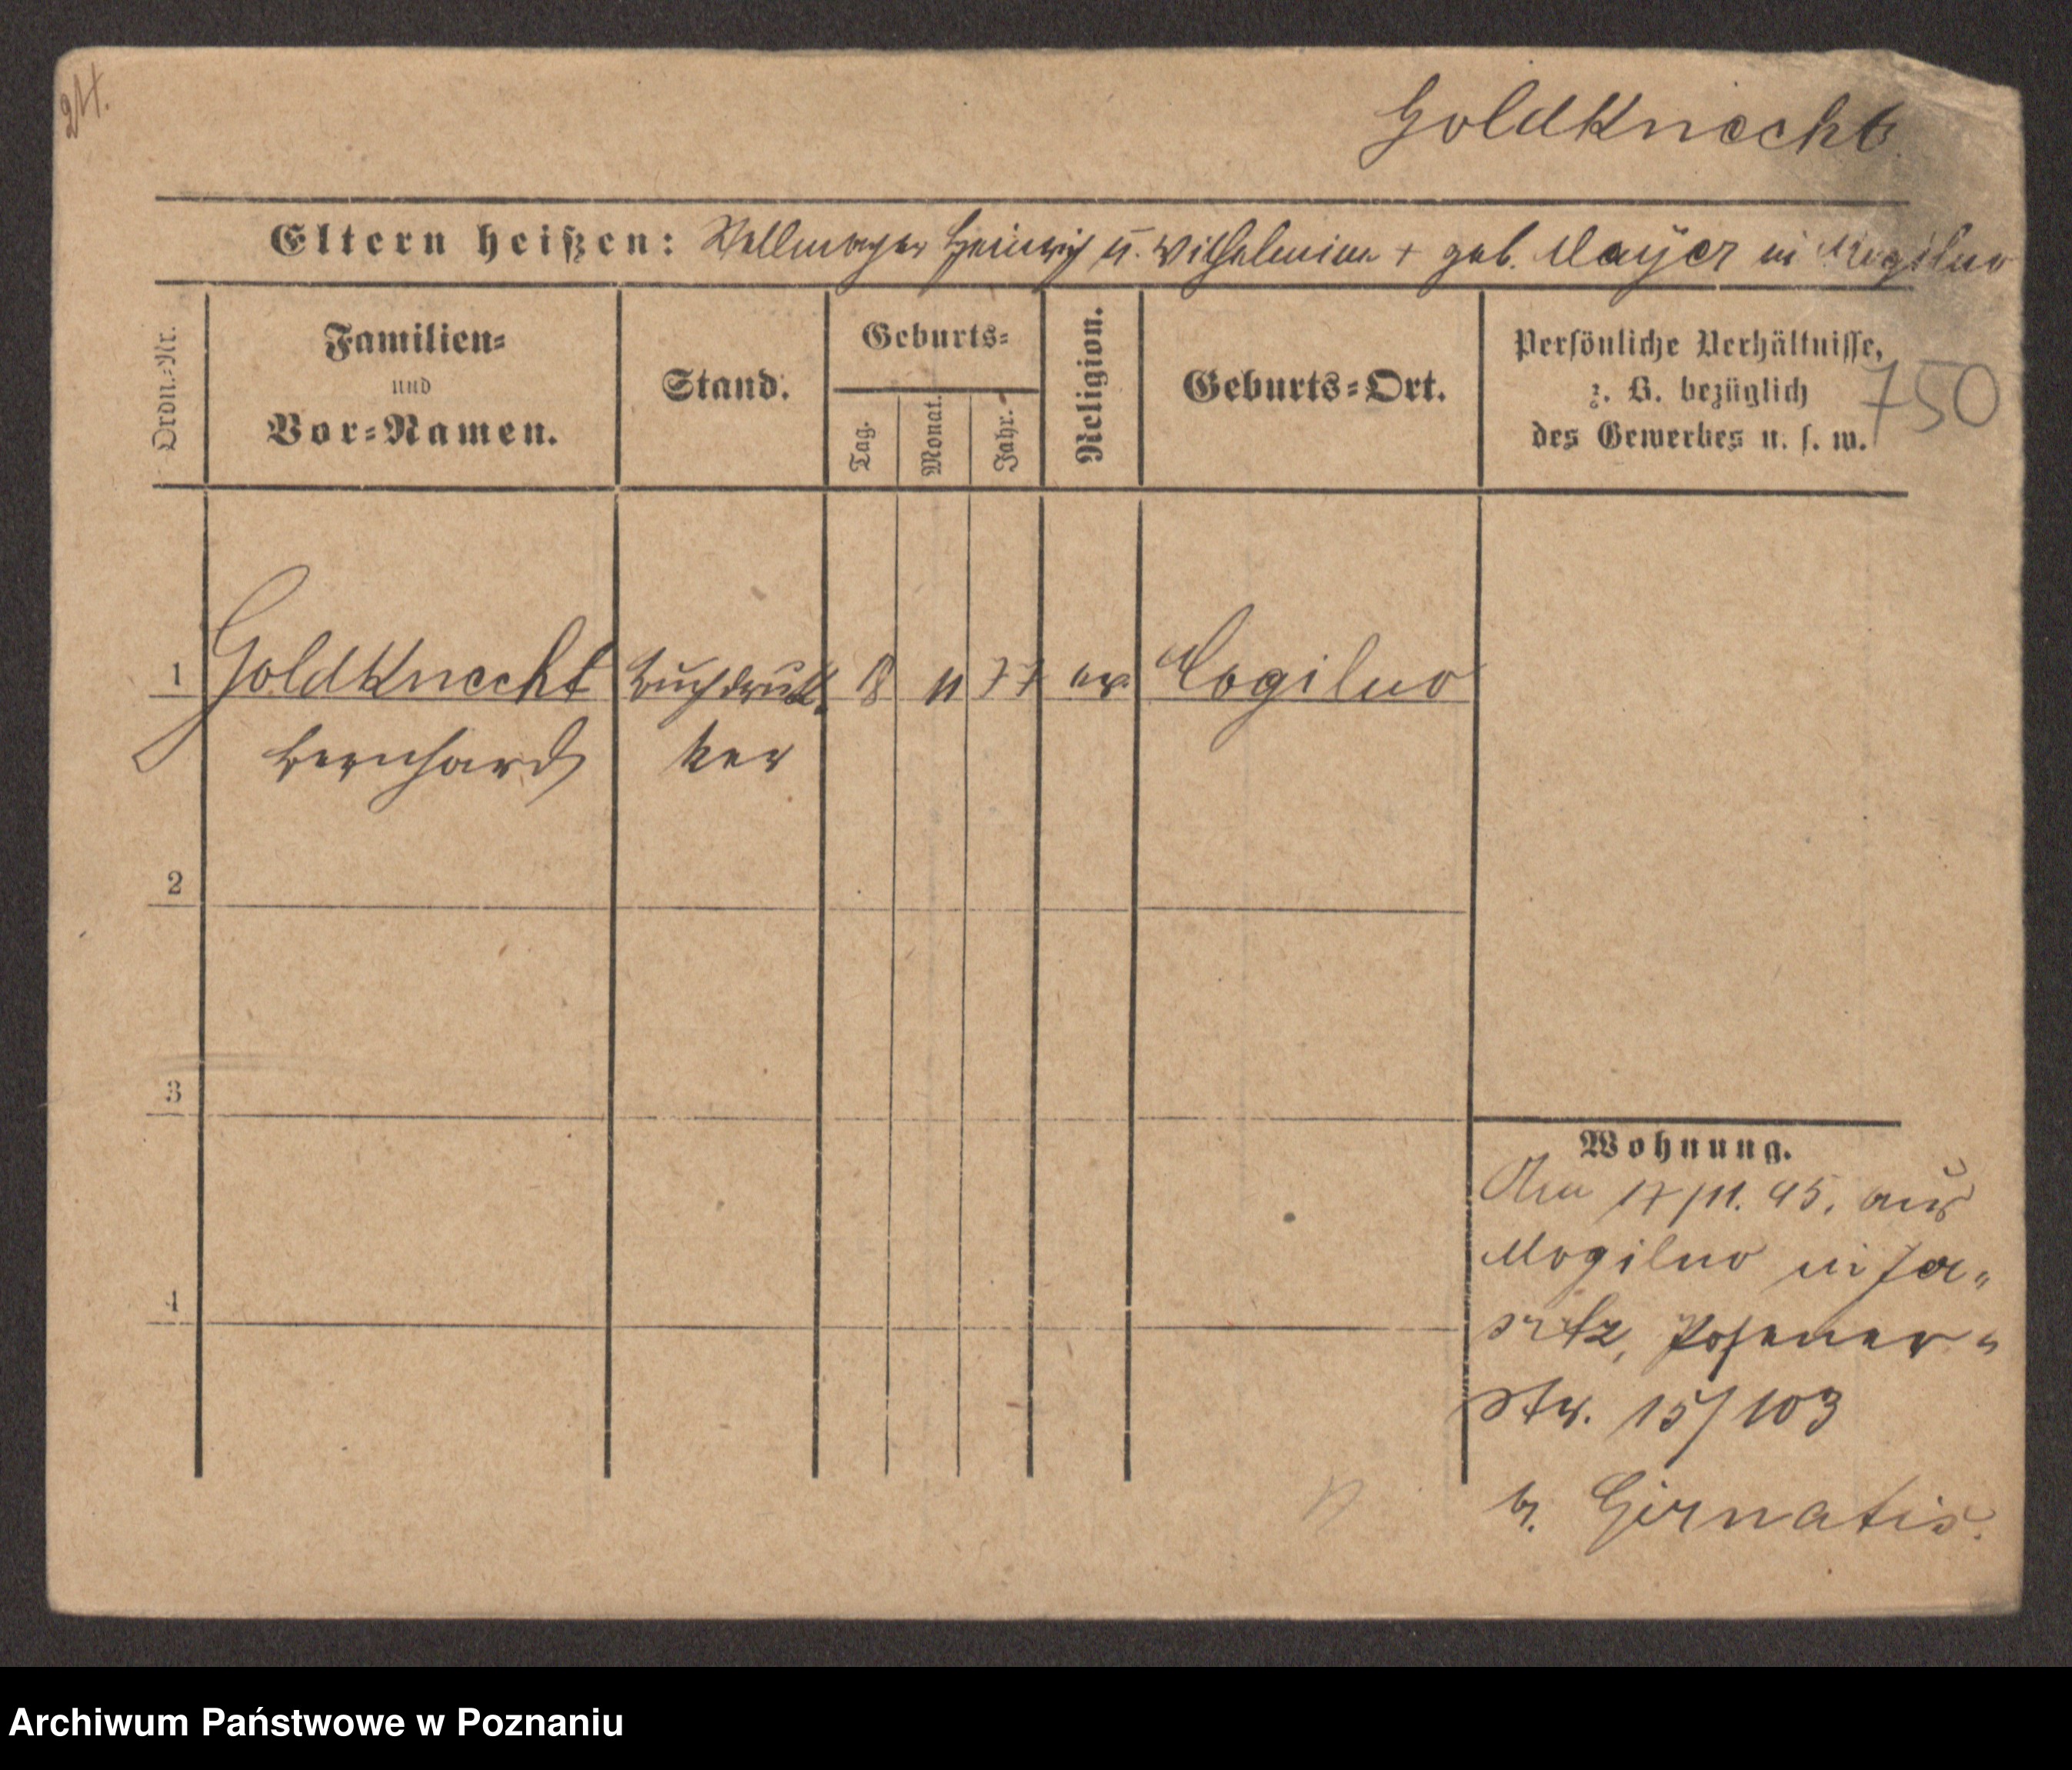 24.
Goldknecht
Eltern heißen: Stellmacher Heinrich u. Wilhelmine + geb. Mayer in Mogilno
Ordn.-Nr.
Familien-
und
Vor-Namen.
Stand.
Geburts-
Tag.
Monat.
Jahr.
Religion.
Geburts-Ort.
Persönliche Verhältnisse,
z. B. bezüglich
des Gewerbes u. s. w.
750
1 Goldknecht Buchdruk 18 11 77 ev. Mogilno
Bernhard ker
2
3
4
Wohnung.
17/11. 95. aus
Mogilno in Jer„
sitz, Posener„
Str. 15/103
b. Girnatis.
Archiwum Państwowe w Poznaniu